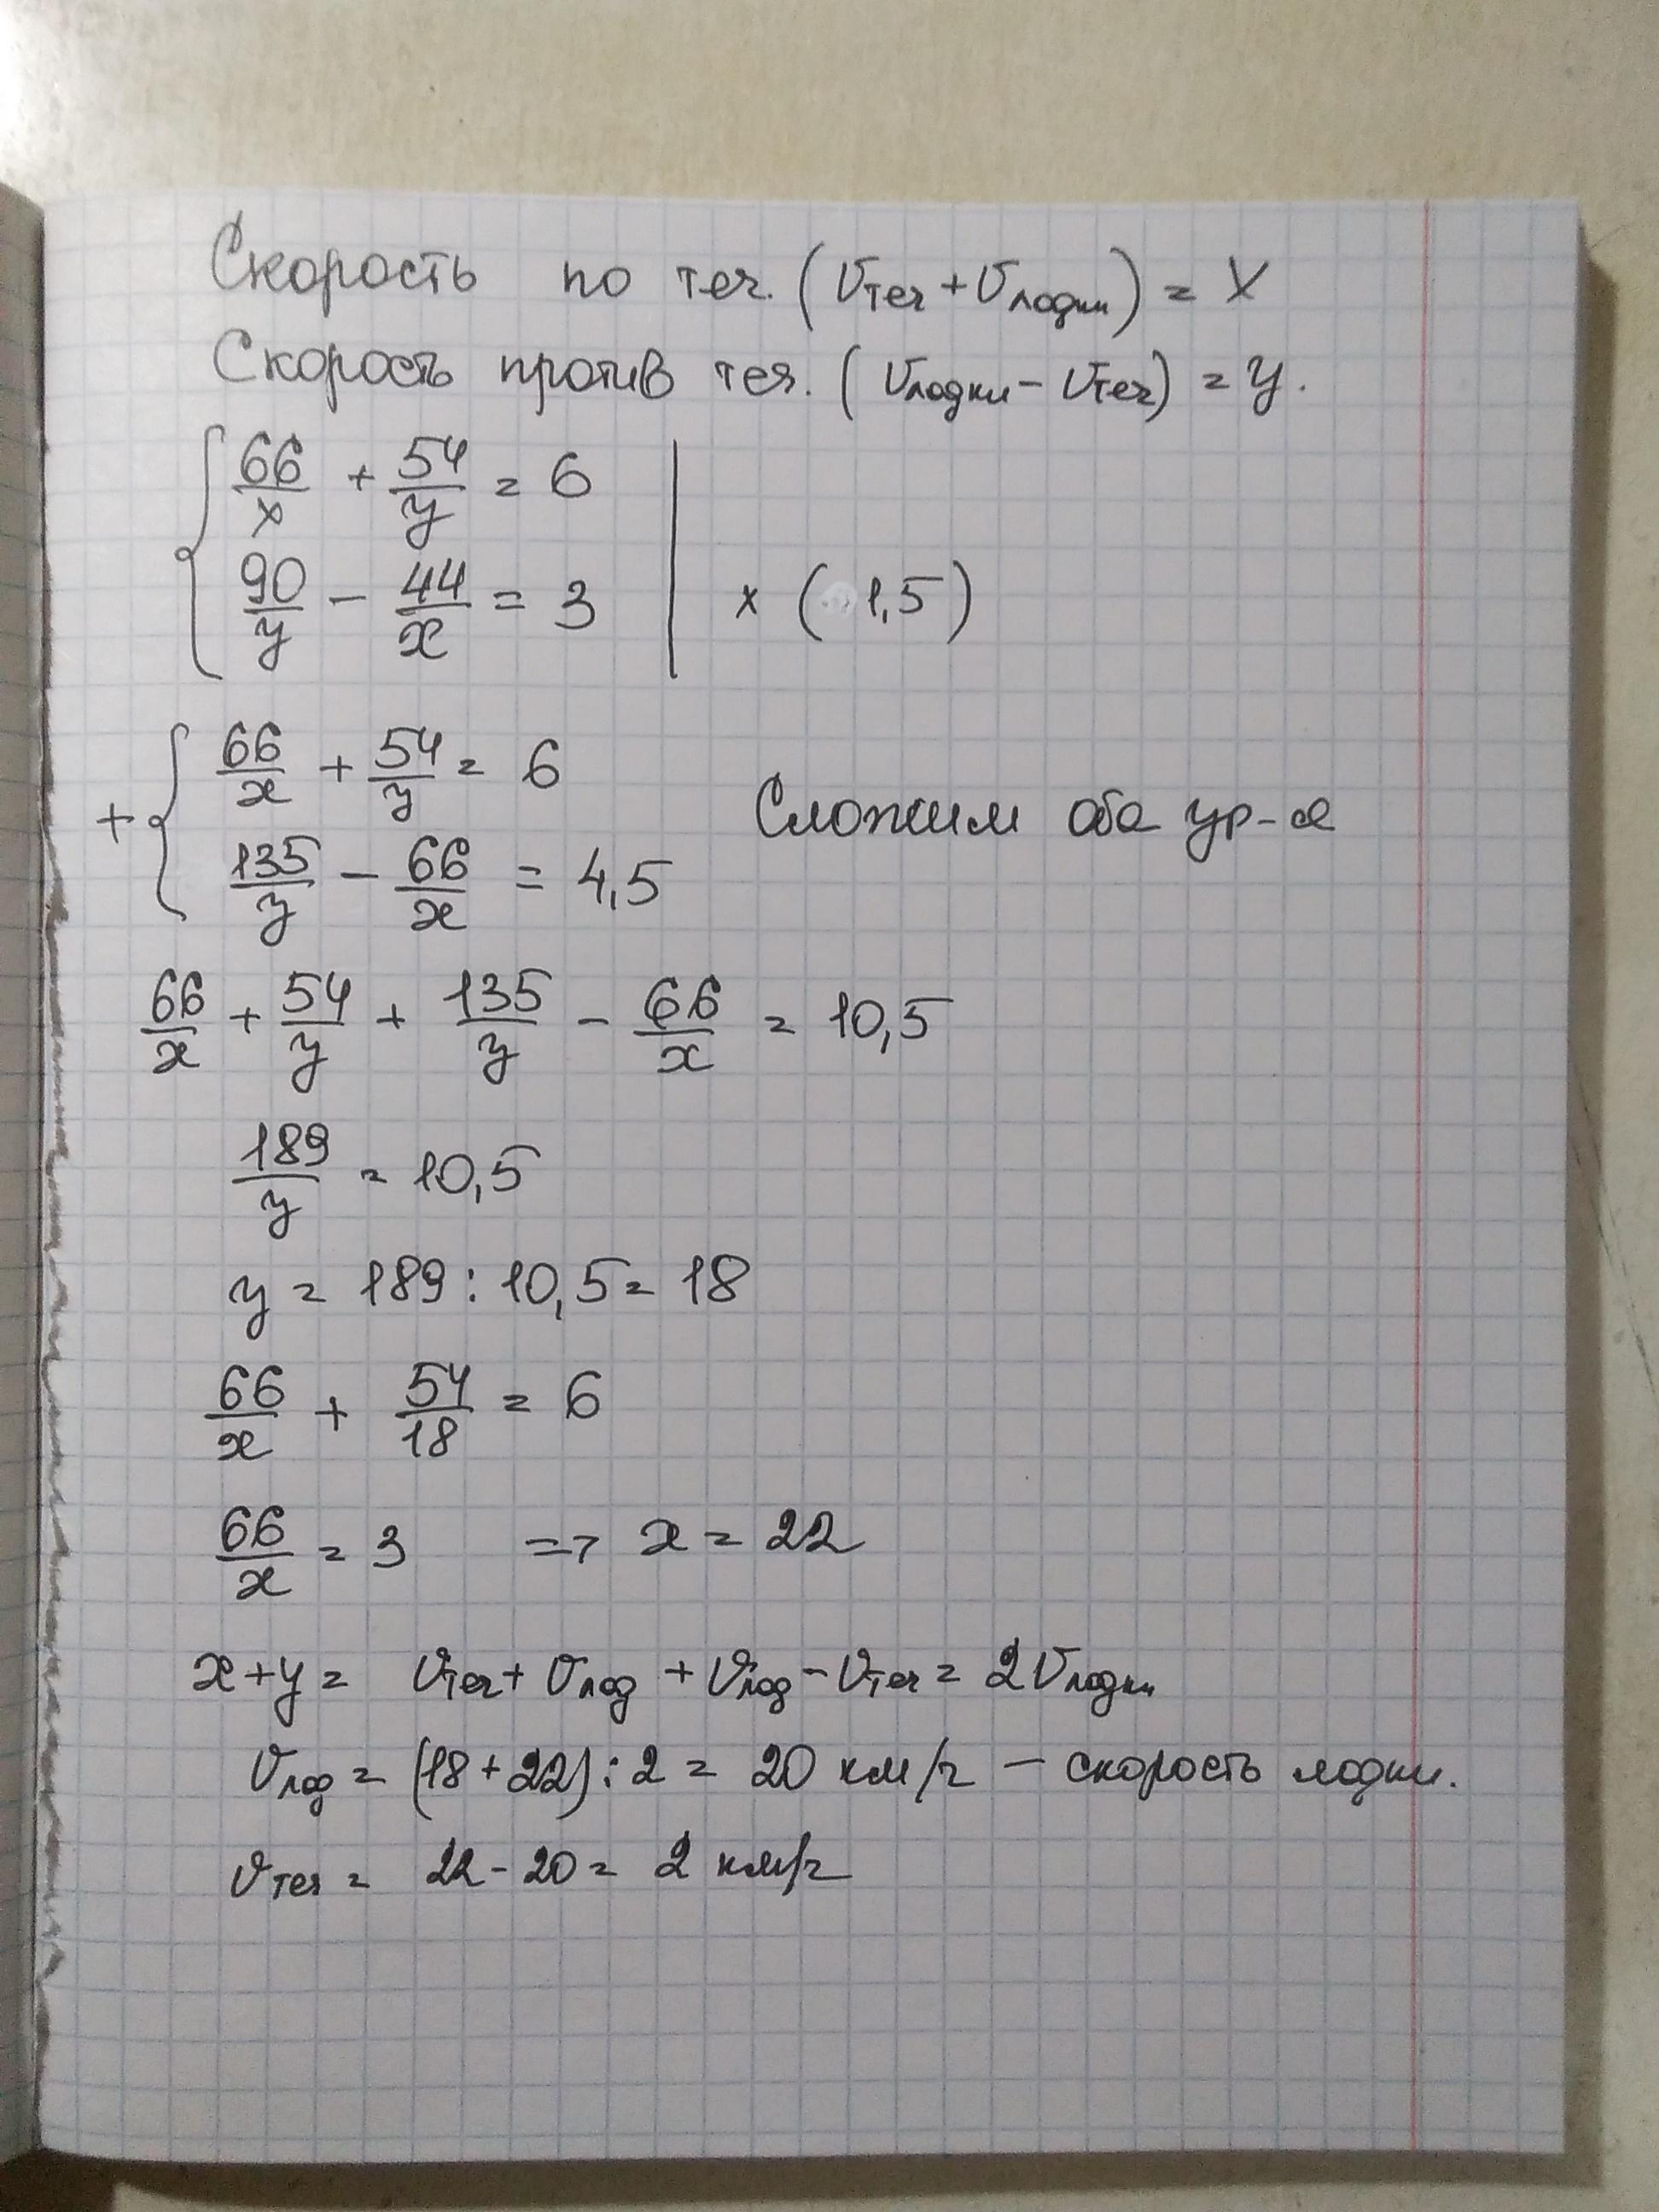 Скорость по теч. (Vтеч + Vлодки) = X
Скорость против теч. (Vлодки - Vтеч) = y.
66/x + 54/y = 6
90/y - 44/x = 3 | x (1,5)
+ { 66/x + 54/y = 6
135/y - 66/x = 4,5
Сложим оба ур-я
66/x + 54/y + 135/y - 66/x = 10,5
189/y = 10,5
y = 189 : 10,5 = 18
66/x + 54/18 = 6
66/x = 3 => x = 22
x + y = Vтеч + Vлод + Vлод - Vтеч = 2Vлодки
Vлод = (18 + 22) : 2 = 20 км/ч - скорость лодки.
Vтеч = 22 - 20 = 2 км/ч